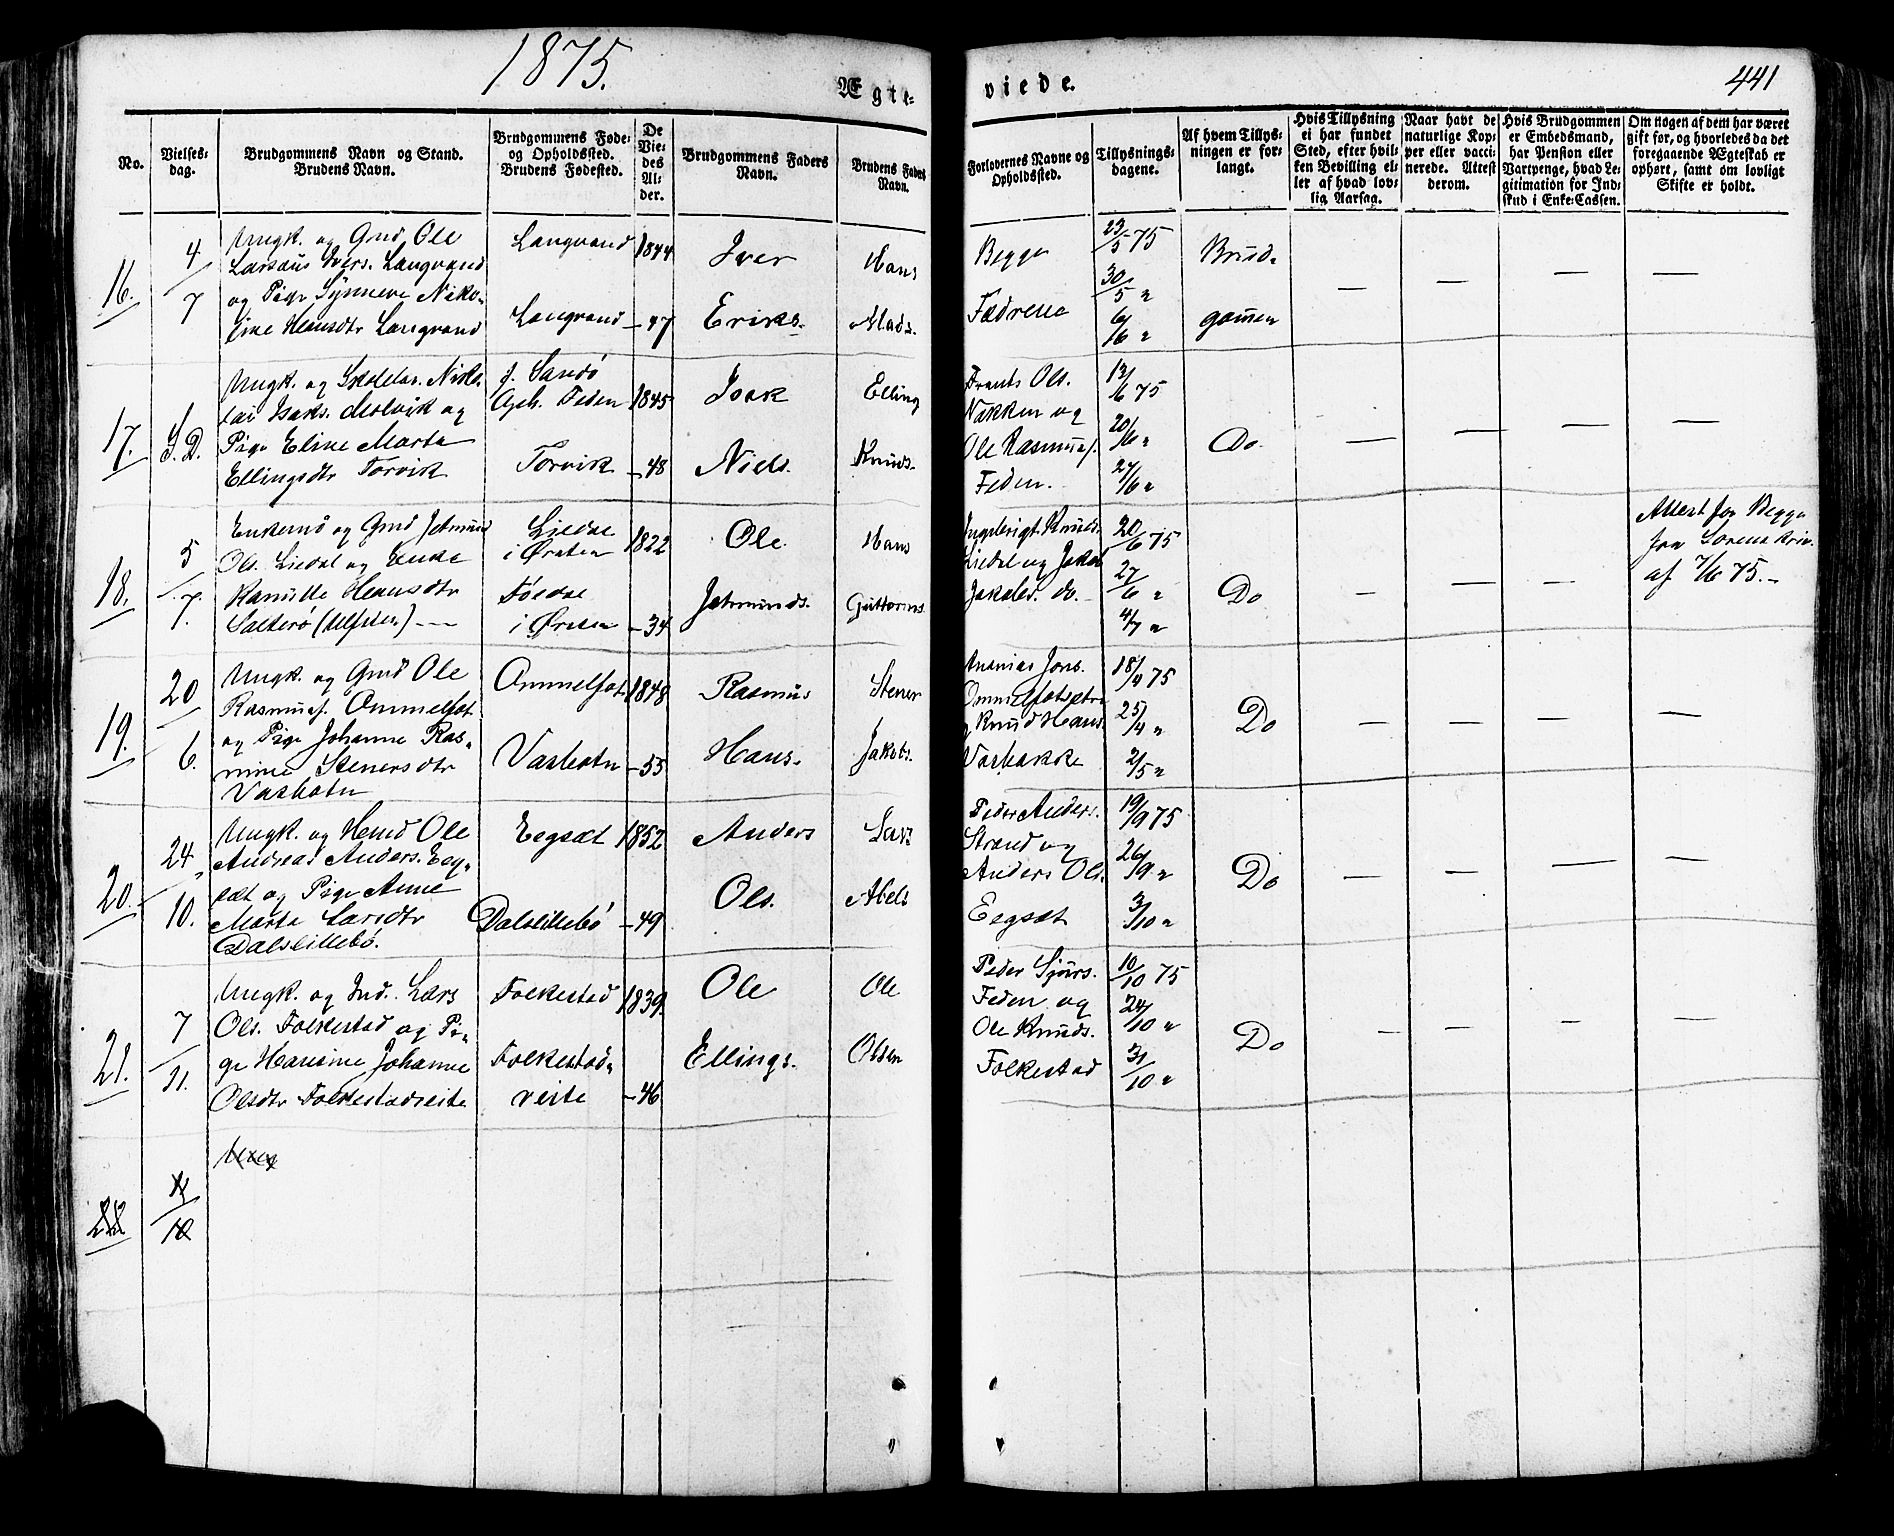 1875.
Ægte-
viede.
441
No.
Vielses-
dag.
Brudgommens Navn og Stand.
Brudens Navn.
Brudgommens Føde-
og Opholdssted.
Brudens Fødested.
De
Vie-
des
Al-
der.
Brudgommens Faders
Navn.
Brudens Faders
Navn.
Forlovernes Navne og
Opholdssted.
Tillysnings-
dagene.
Af hvem Tillys-
ningen er for-
langt.
Hvis Tillysning
ei har fundet
Sted, efter hvil-
ken Bevilling el-
ler af hvad lov-
lig Aarsag.
Naar havt de
naturlige Kop-
per eller vacci-
nerede. Attest
derom.
Hvis Brudgommen
er Embedsmand,
har Pension eller
Vartpenge, hvad Le-
gitimation for Ind-
skud i Enke-Cassen.
Om nogen af dem har været
gift før, og hvorledes da det
foregaaende Ægteskab er
ophørt, samt om lovligt
Skifte er holdt.
16.
4/7
Ungk. og Gmd Ole
Larsaus Ivers. Langvand
og Pige Synneve Niko-
line Hansdtr Langvand
Langvand
Langvand
1844
-47
Iver
Eriks.
Hans
Mads.
Begge
Fædrene
23/5 75
30/5 "
6/6 "
Brud-
gommen
— — — —
17.
S.D.
Ungk. og Skolelær. Niko-
lai Isaks. Molvik og
Pige Eline Marta
Ellingsdtr Torvik
f. Sandø
Oph. Feden
Torvik
1845
-48
Isak
Niels.
Elling
Knuds.
Frants Ols.
Nakken og
Ole Rasmuss.
Feden.
13/6 75
20/6 "
27/6 "
Do.
— — — —
18.
5/7.
Enkemd og Gmd Jetmund
Ols. Liedal og Enke
Hansdtr
Liedal
i Ørsten
i Ørsten
1822
-34
Ole
Jetmunds.
Hans
Guttorms.
Ingebrigt Knuds.
Liedal og Jakob
Jakobs. do.
20/6 75
27/6 "
4/7 "
Do
— — —
Attest for Begge
fra Sorenskriv.
af 7/6 75. -
19.
20/6.
Ungk. og Gmd Ole
Rasmuss. Ommelfot
og Pige Johanne Ras-
mine Stenersdtr
Vasbotn
Ommelfot
Vasbotn
1848
-55
Rasmus
Hans.
Stener
Jakobs.
Ananias Jons.
Ommelfotsætre
og Knud Hans.
Vasbakke
18/4 75
25/4 "
2/5 "
Do
— — — —
20.
24/10.
Ungk. og Ole
Andreas Anders. Eeg-
sæt og Pige Anne
Marta Larsdtr
Dalslillebø.
Eegsæt
Dalslillebø
1852
-49
Anders
Ols.
Lars
Abels
Peder Anders.
Strand og
Anders Ols.
Eegsæt
19/9 75
26/9 "
3/10 "
Do
— — — —
21.
7/11.
Ungk. og Ind. Lars
Ols. Folkestad og Pi-
ge Johanne
Olsdtr Folkestadveite
Folkestad
Folkestad-
veite
1839.
-46
Ole
Ellings.
Ole
Olsen
Peder Sjurs.
Feden og
Ole Knuds.
Folkestad
10/10 75
24/10 "
31/10 "
Do
— — — —
22